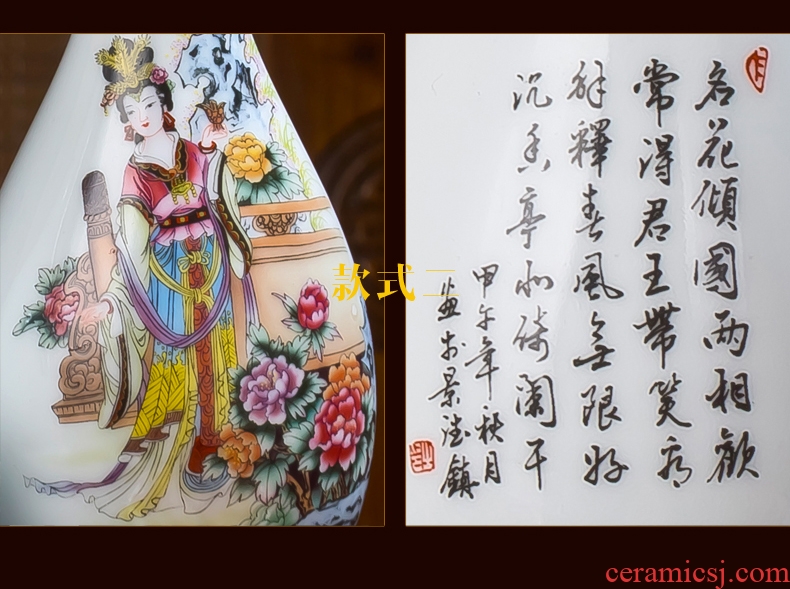 名花傾國两相歡
常得君王帶笑看
解釋春風無限好
沉香亭北倚闌干
甲午年秋月
畫於景德鎮
款式二
ceramicsj.com